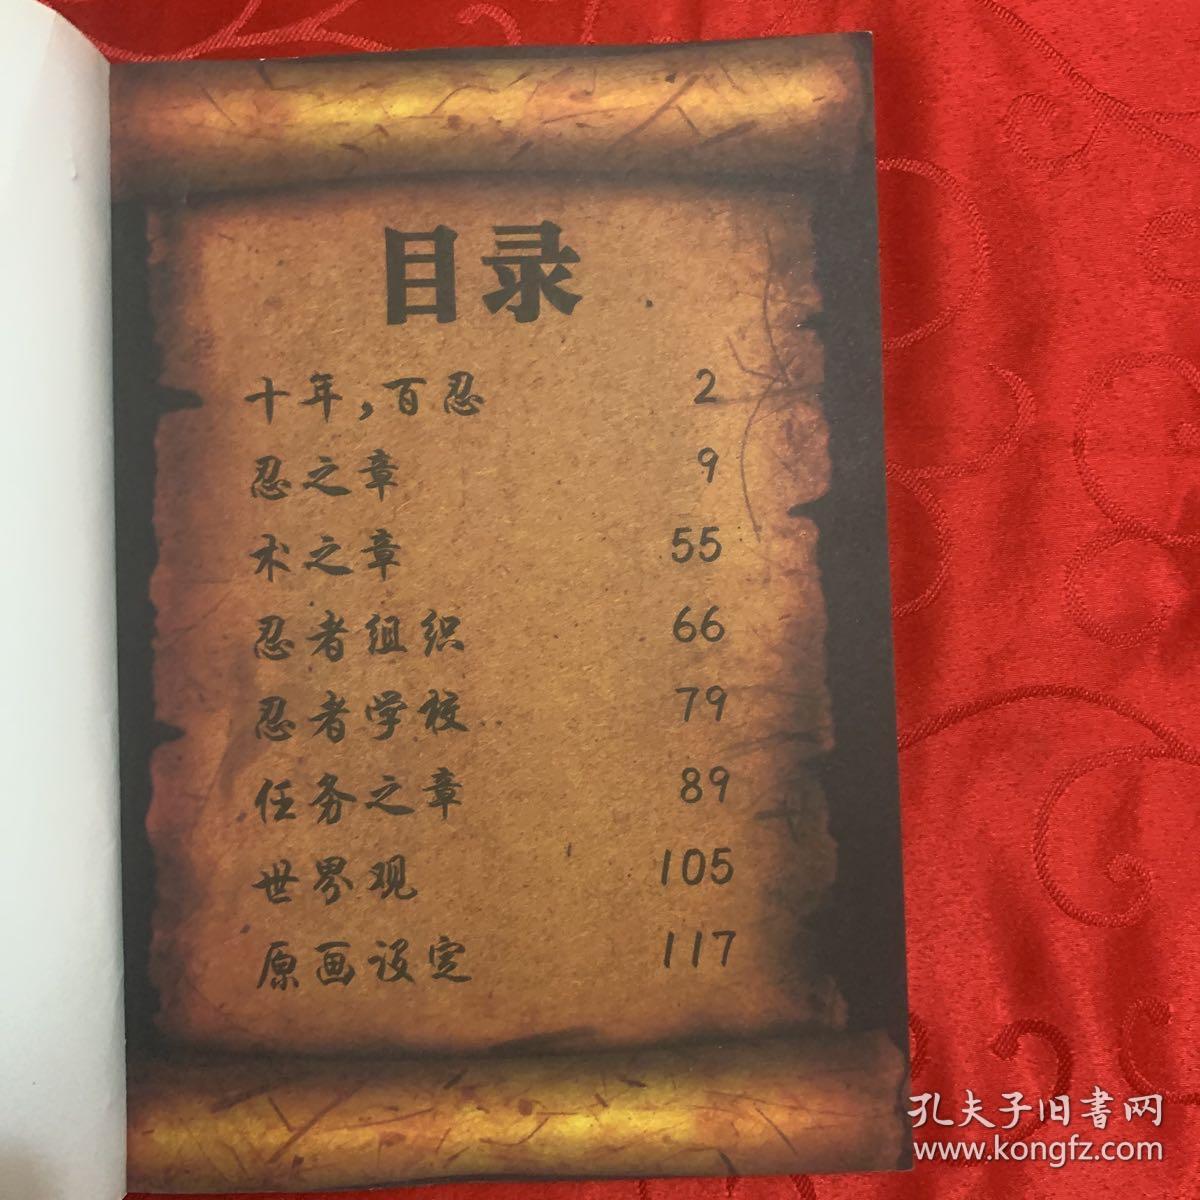 目录
十年,百忍 2
忍之章 9
术之章 55
忍者组织 66
忍者学校 79
任务之章 89
世界观 105
原画设定 117
孔夫子旧書网
www.kongfz.com